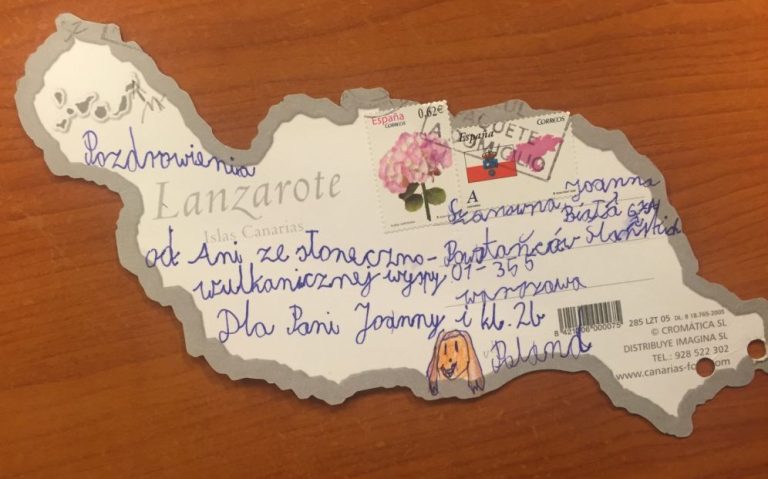 España
CORREOS
0,62€
España
CORREOS
A
PAQUETE
Pozdrowienia
Lanzarote
Islas Canarias
od Ani ze słoneczno-
wulkanicznej wyspy.
Dla Pani Joanny i kl. 2b
Szanowna Joanna
Biała
Powstańców Śląskich
01-355
warszawa
Poland
8 421006 000075
285 LZT 05 DL. B 18.765-2005
© CROMÁTICA SL
DISTRIBUYE IMAGINA SL
TEL.: 928 522 302